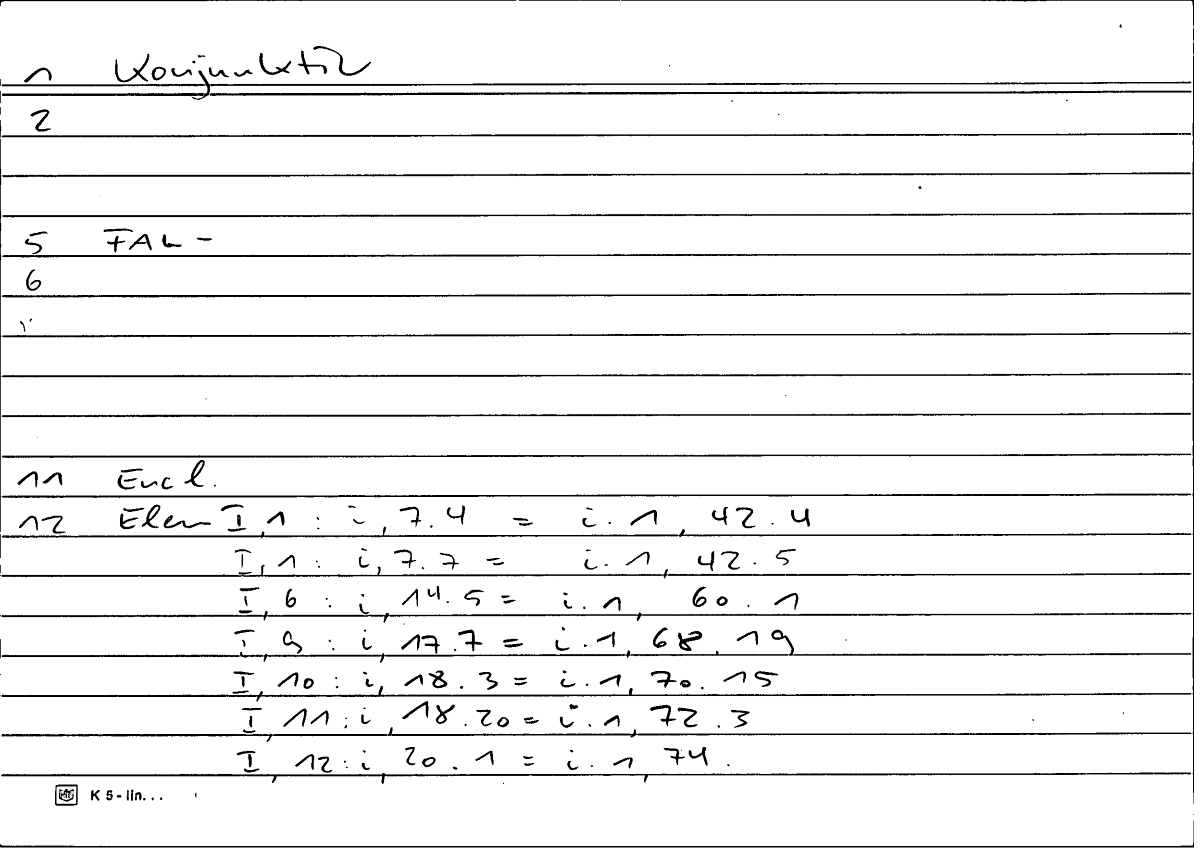 1 Konjunktiv
2
5 FAL -
6
11 Eucl.
12 Elem I,1 : i, 7.4 = i.1, 42.4
I,1 : i, 7.7 = i.1, 42.5
I,6 : i, 14.5 = i.1, 60.1
I,9 : i, 17.7 = i.1, 68.19
I,10 : i, 18.3 = i.1, 70.15
I,11 : i, 18.20 = i.1, 72.3
I,12 : i, 20.1 = i.1, 74.
K 5 - lin...